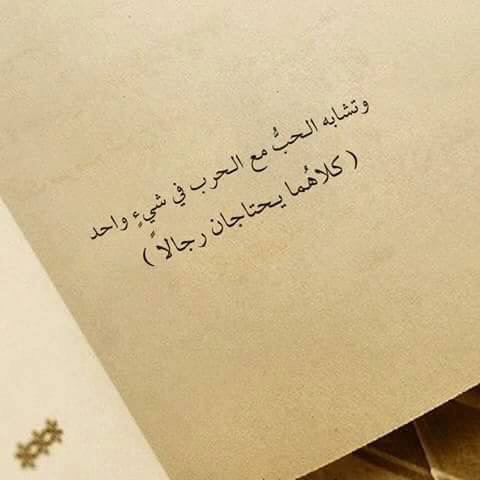 وتشابه الحبُّ مع الحرب في شيءٍ واحد
( كلاهُما يحتاجان رجالاً )